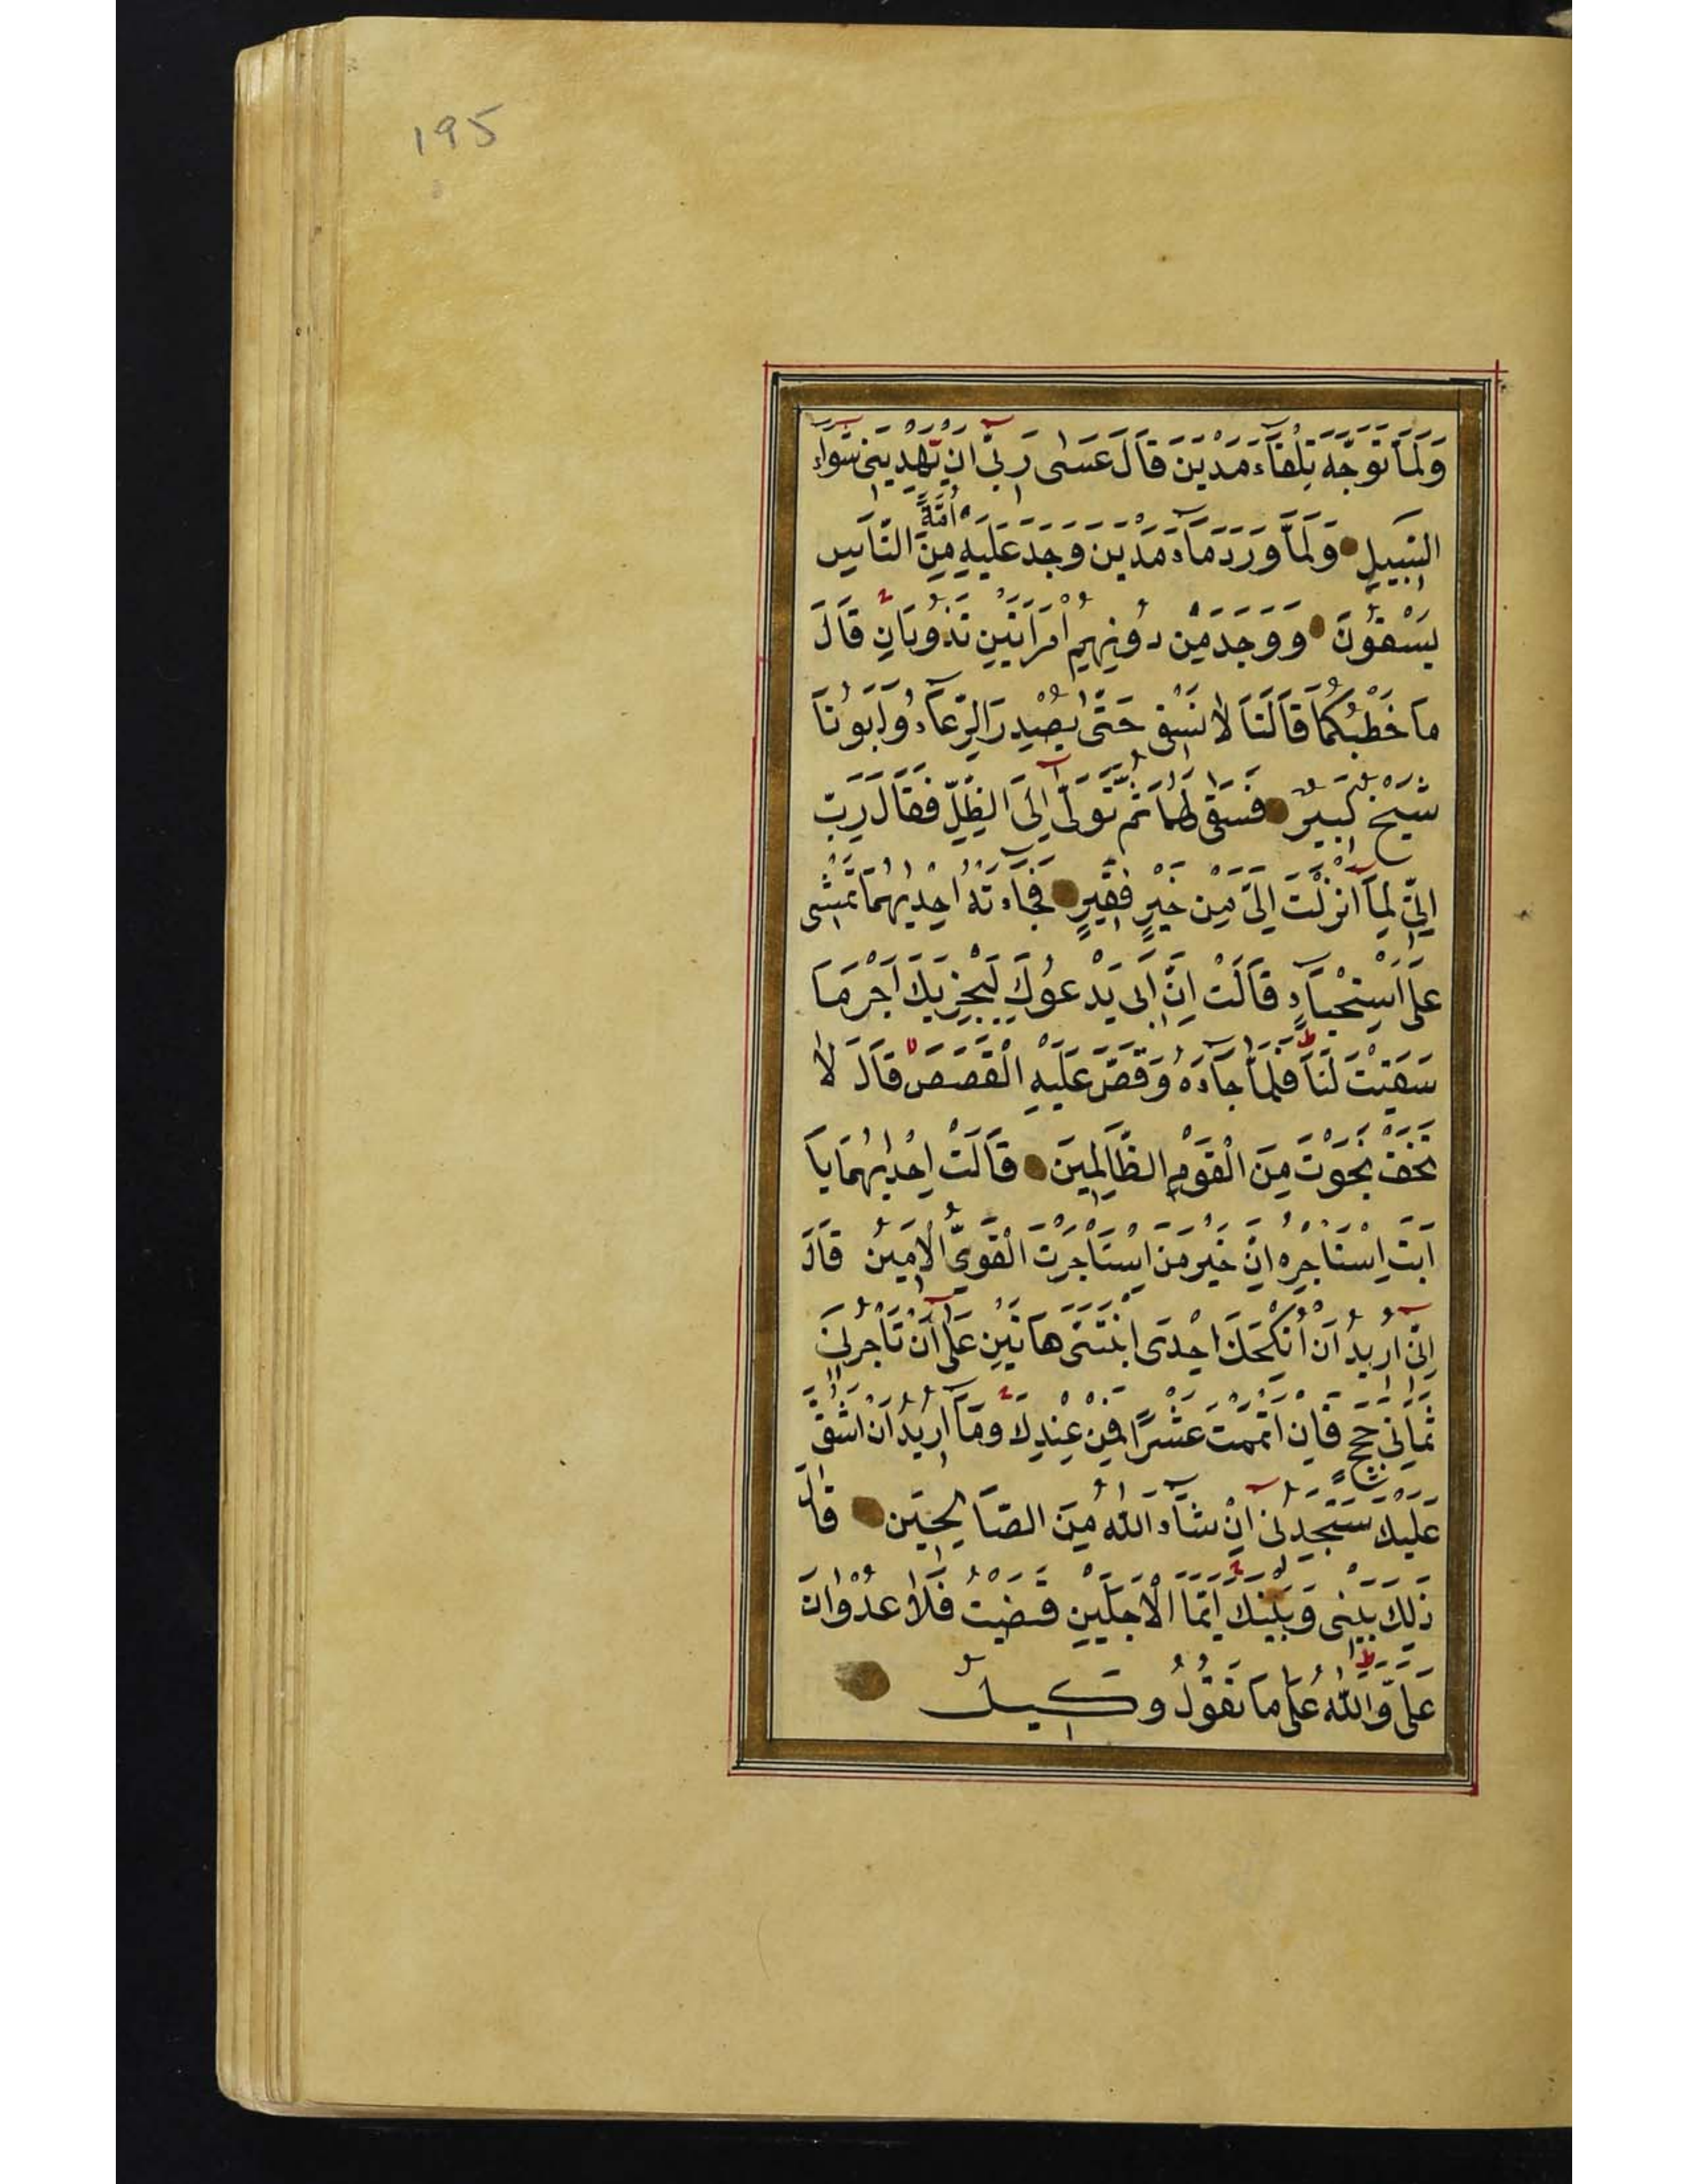 195
وَلَمَّا تَوَجَّهَ تِلْقَآءَ مَدْيَنَ قَالَ عَسٰى رَبّىٓ اَنْ يَهْدِيَنى سَوَآءَ
السَّبيلِ وَلَمَّا وَرَدَ مَآءَ مَدْيَنَ وَجَدَ عَلَيْهِ اُمَّةً مِنَ النَّاسِ
يَسْقُونَ وَوَجَدَ مِنْ دُونِهِمُ امْرَاَتَيْنِ تَذُودَانِ قَالَ
مَا خَطْبُكُمَا قَالَتَا لَا نَسْقى حَتّٰى يُصْدِرَ الرِّعَآءُ وَاَبُونَا
شَيْخٌ كَبيرٌ فَسَقٰى لَهُمَا ثُمَّ تَوَلّٰىٓ اِلَى الظِّلِّ فَقَالَ رَبِّ
اِنّى لِمَآ اَنْزَلْتَ اِلَىَّ مِنْ خَيْرٍ فَقيرٌ فَجَآءَتْهُ اِحْدٰيهُمَا تَمْشى
عَلَى اسْتِحْيَآءٍ قَالَتْ اِنَّ اَبى يَدْعُوكَ لِيَجْزِيَكَ اَجْرَ مَا
سَقَيْتَ لَنَا فَلَمَّا جَآءَهُ وَقَصَّ عَلَيْهِ الْقَصَصَ قَالَ لَا
تَخَفْ نَجَوْتَ مِنَ الْقَوْمِ الظَّالِمينَ قَالَتْ اِحْدٰيهُمَا يَا
اَبَتِ اسْتَاْجِرْهُ اِنَّ خَيْرَ مَنِ اسْتَاْجَرْتَ الْقَوِىُّ الْاَمينُ قَالَ
اِنّىٓ اُريدُ اَنْ اُنْكِحَكَ اِحْدَى ابْنَتَىَّ هَاتَيْنِ عَلٰىٓ اَنْ تَاْجُرَنى
ثَمَانِىَ حِجَجٍ فَاِنْ اَتْمَمْتَ عَشْرًا فَمِنْ عِنْدِكَ وَمَآ اُريدُ اَنْ اَشُقَّ
عَلَيْكَ سَتَجِدُنىٓ اِنْ شَآءَ اللّٰهُ مِنَ الصَّالِحينَ قَالَ
ذٰلِكَ بَيْنى وَبَيْنَكَ اَيَّمَا الْاَجَلَيْنِ قَضَيْتُ فَلَا عُدْوَانَ
عَلَىَّ وَاللّٰهُ عَلٰى مَا نَقُولُ وَكيلٌ